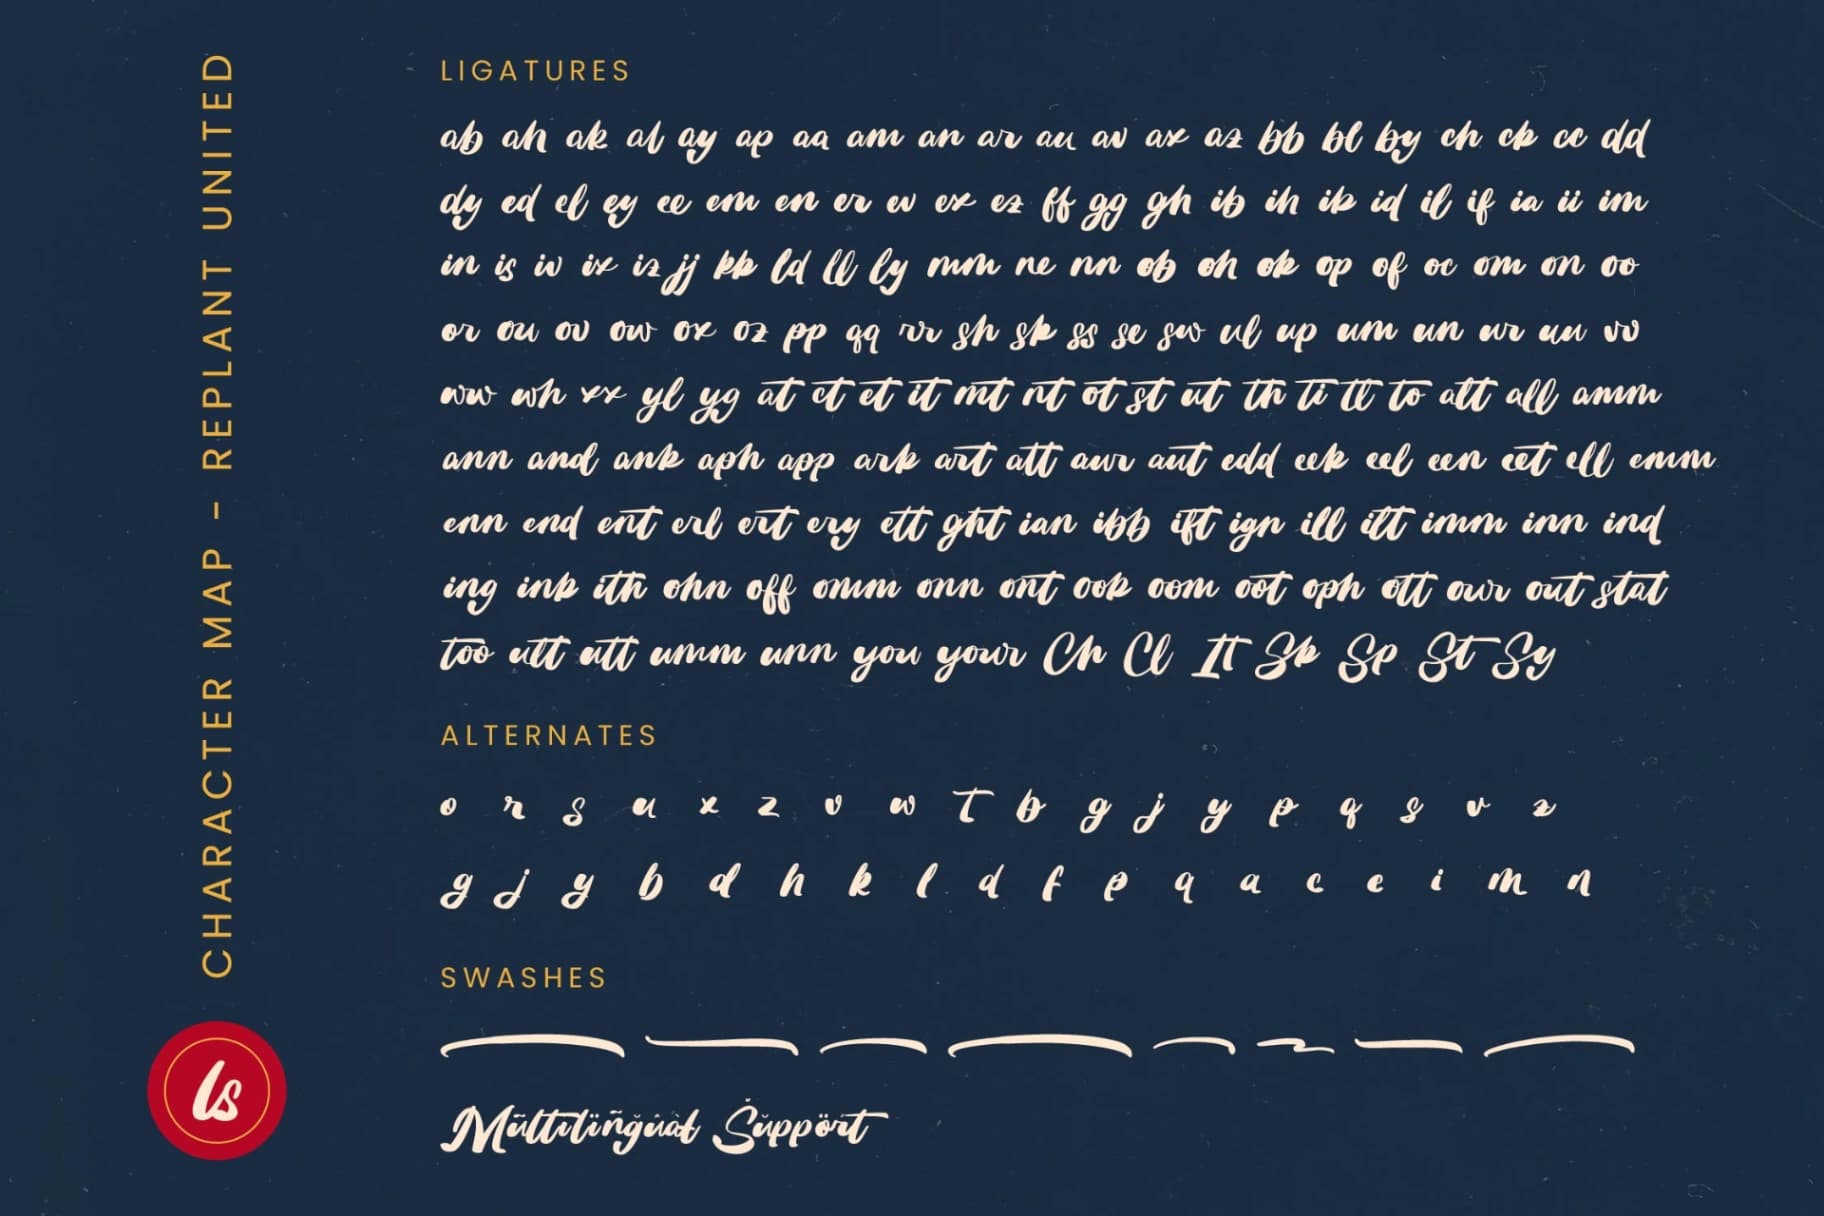 CHARACTER MAP - REPLANT UNITED
LIGATURES
ab ah ak al ay ap aa am an ar au av ax az bb bl by ch ck cc dd
dy ed el ey ee em en er ev ex ez ff gg gh ib ih ik id il if ia ii im
in is iv ix iz jj kk ld ll ly mm ne nn ob oh ok op of oc om on oo
or ou ov ow ox oz pp qq rr sh sk ss se sw ul up um un ur uu vv
ww wh xx yl yg at ct et it mt nt ot st ut th ti tt to att all amm
ann and ank aph app ark art att aur aut edd eek eel een eet ell emm
enn end ent erl ert ery ett ght ian ibb ift ign ill itt imm inn ind
ing ink ith ohn off omm onn ont ook oom oot oph ott our out stat
too utt unn you your Ch Cl It Sk Sp St Sy
ALTERNATES
o r s u x z v w T b g j y p q s v z
g j y b d h k l d f p q a c e i m n
SWASHES
Multilingual Support
ls